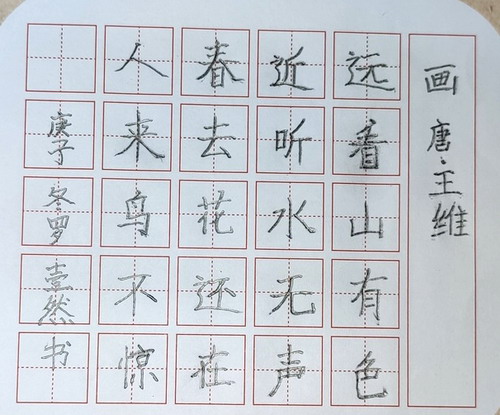 画 唐·王维
远看山有色
近听水无声
春去花还在
人来鸟不惊
庚子冬罗壹然书